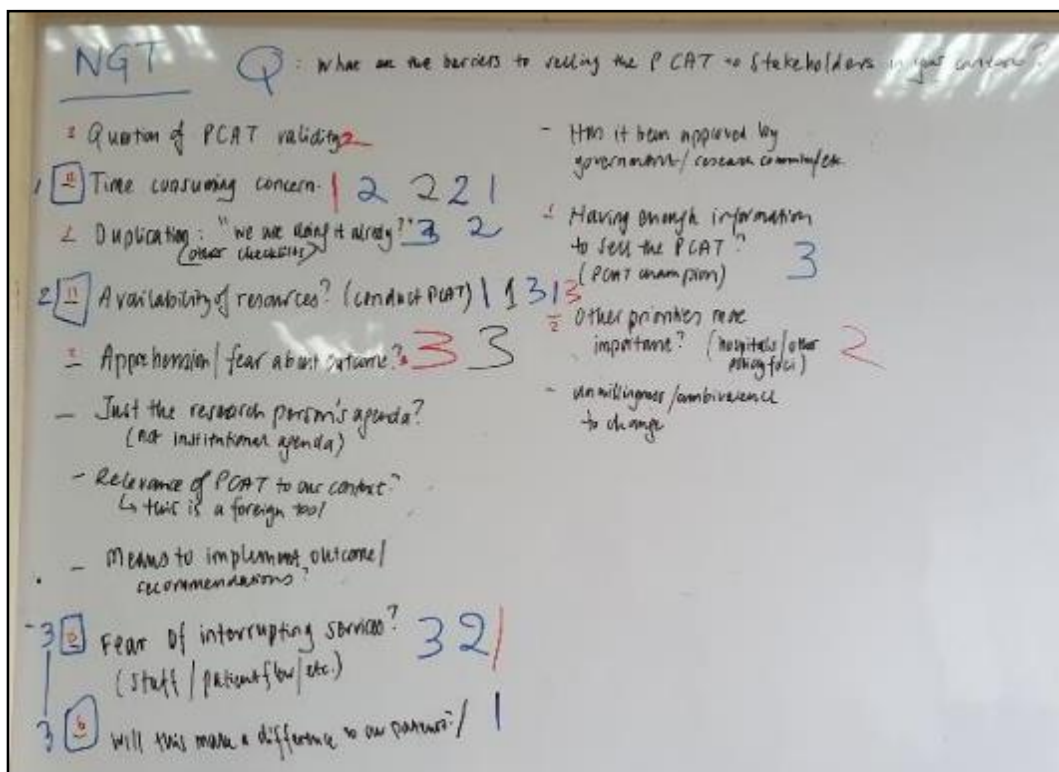 NGT Q: What are the barriers to selling the PCAT to stakeholders in your context?
Question of PCAT validity 2
1 11 Time consuming concern. 1 2 2 2 1
Duplication: "we are doing it already?" 3 2
(other checklists)
2 11 Availability of resources? (conduct PCAT) 1 1 3 1 3
Apprehension/fear about outcome? 3 3
- Just the research person's agenda?
(not institutional agenda)
- Relevance of PCAT to our context?
↳ this is a foreign tool
- Means to implement outcome/
recommendations?
3 6 Fear of interrupting services? 3 2 1
(staff/patient flow/etc.)
3 6 Will this make a difference to our patients? 1 1
- Has it been approved by
government/research committee/etc.
1 Having enough information
to sell the PCAT? 3
(PCAT champion)
2 Other priorities more
important? (hospitals/other 2
policy foci)
- unwillingness/ambivalence
to change